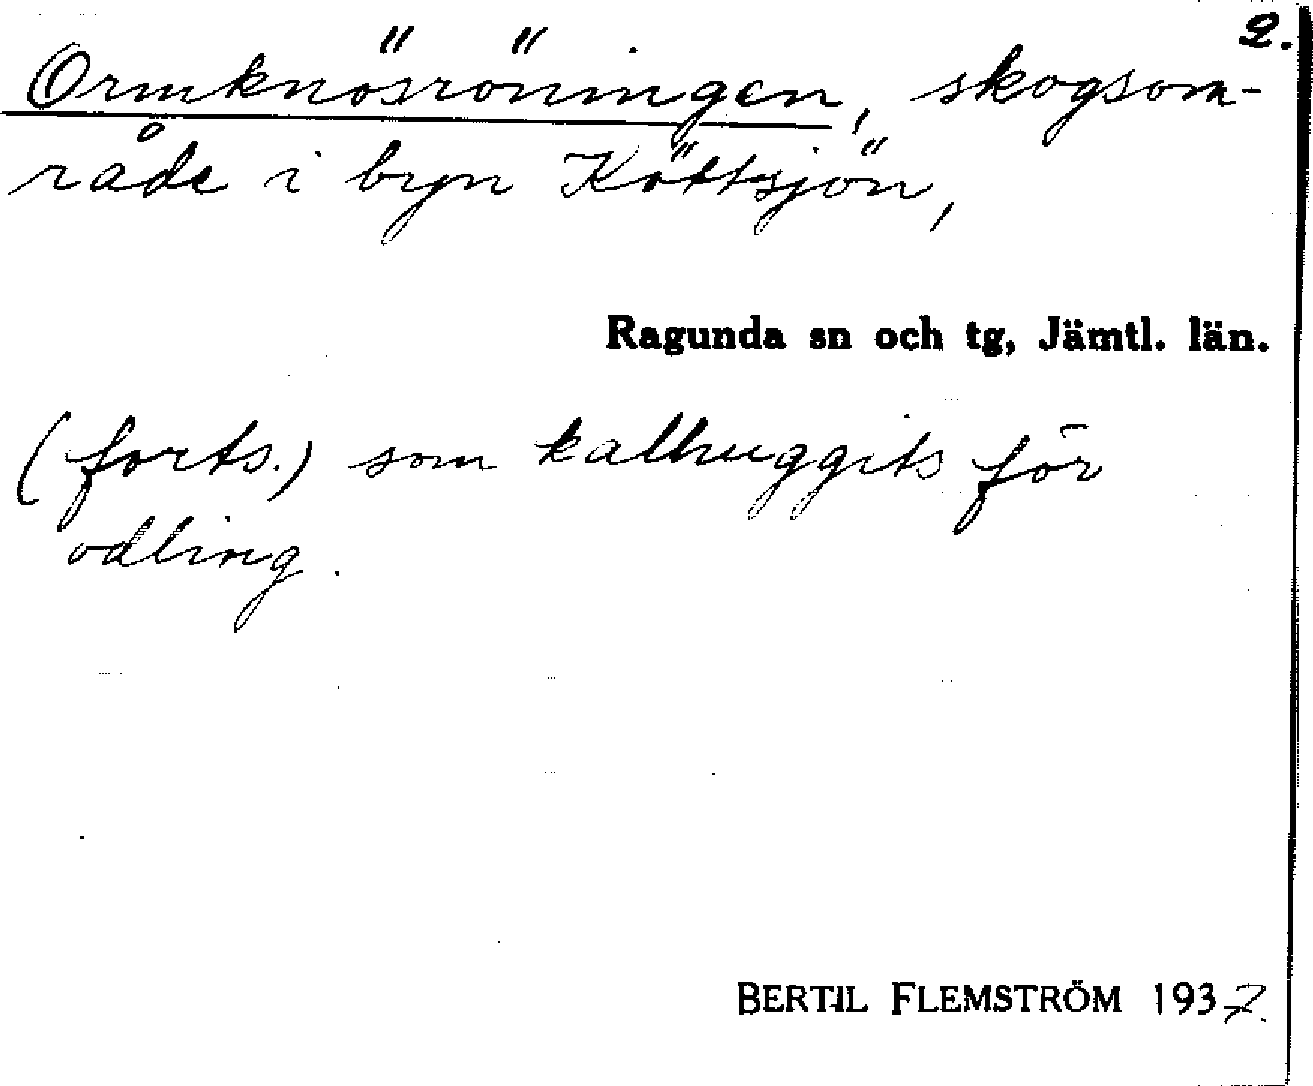 2.
Ormknösröningen, skogsom-
råde i byn Köttsjön,
Ragunda sn och tg, Jämtl. län.
(forts.) som kalhuggits för
odling.
BERTIL FLEMSTRÖM 1937.